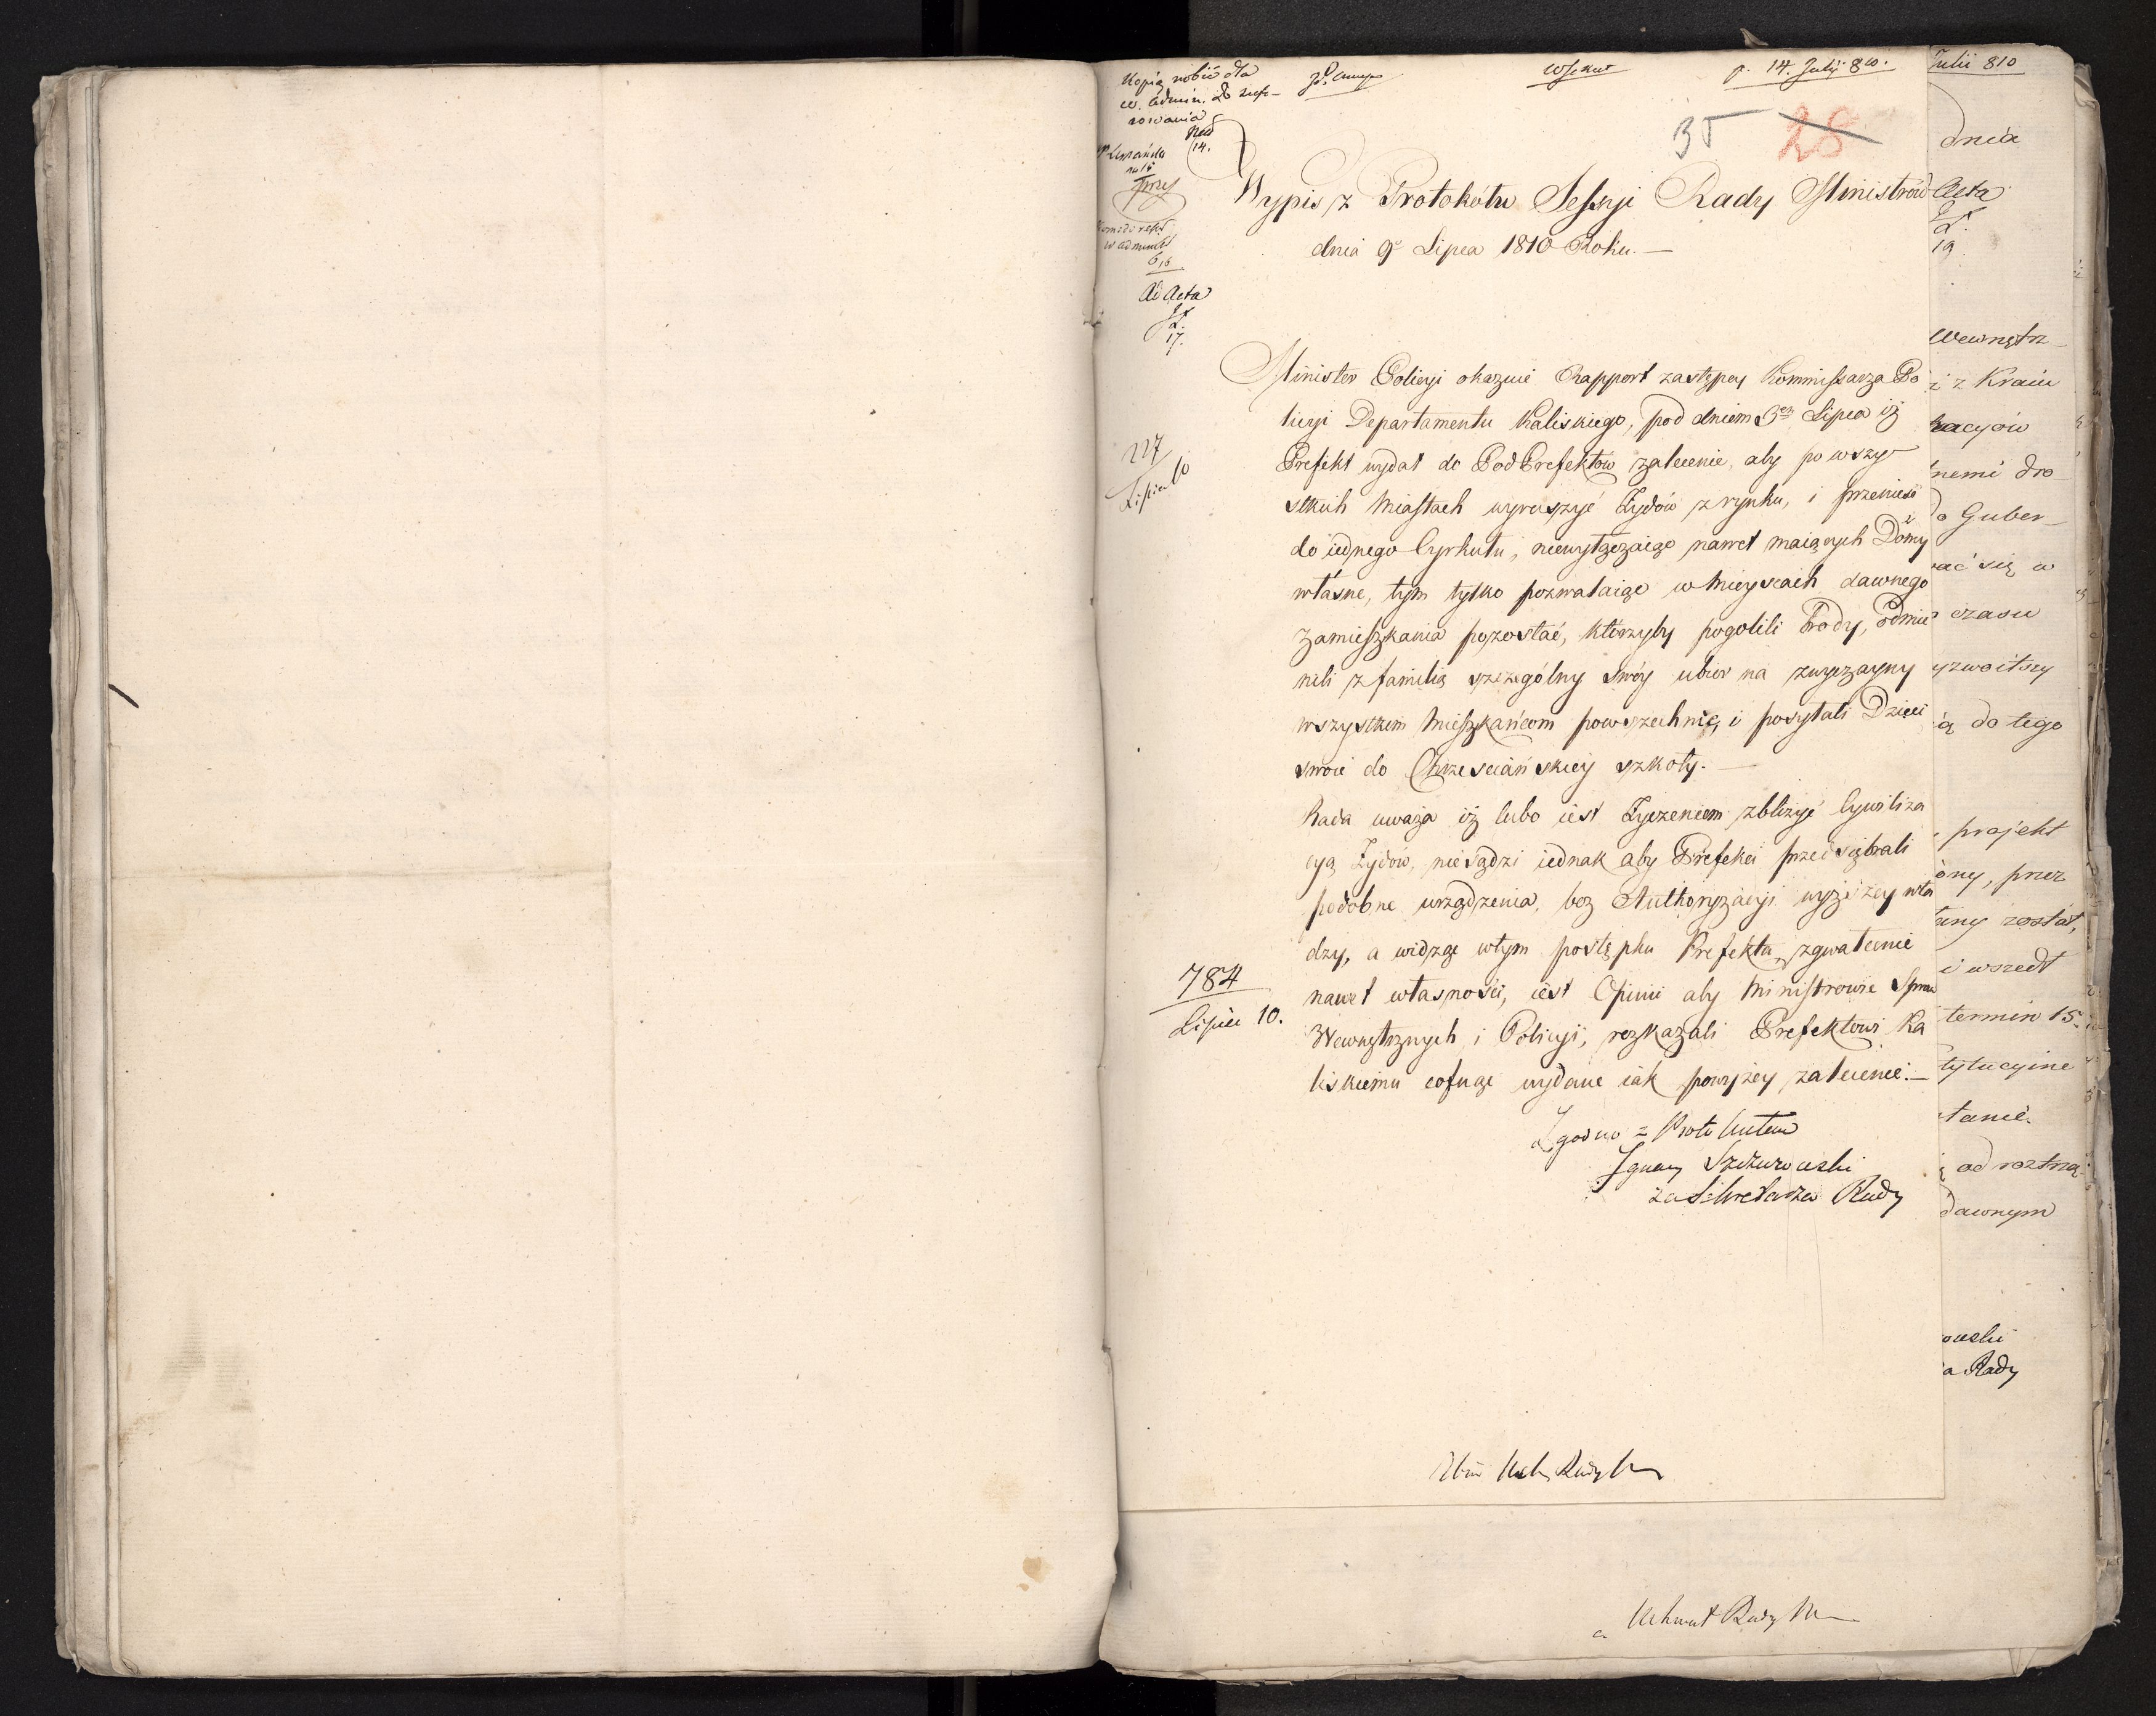 Kopią robić dla
w. admin. do
sowania
14.
Ad Acta
17.
p. 14. Julij 810.
35 28
Wypis z Protokółu Sessyi Rady Ministrów
dnia 9º Lipca 1810 Roku. —
Minister Policyi okazuie Rapport zastępcy Kommissarza Po
licyi Departamentu Kaliskiego, pod dniem 3em Lipca iż
Prefekt wydał do PodPrefektów zalecenie, aby po wszy
stkich Miastach wyruszyć Żydów z rynku, i przenieść
do iednego Cyrkułu, niewyłączaiąc nawet maiących Domy
własne, tym tylko pozwalaiąc w Mieyscach dawnego
zamieszkania pozostać, którzyby pogolili Brody, odmie
nili z familią szczególny swóy ubior na zwyczayny
wszystkim Mieszkańcom powszechnie, i posyłali Dzieci
swoie do Chrześciańskiey szkoły. —
Rada uważa iż lubo iest Życzeniem zbliżyć Cywiliza
cyą Żydów, niesądzi iednak aby Prefekci przedsiębrali
podobne urządzenia, bez Authoryzacyi wyższey wła
dzy, a widząc wtym postępku Prefekta, zgwałcenie
nawet własności, iest Opinii aby Ministrowie Spraw
Wewnętrznych i Policyi, rozkazali Prefektowi Ka
liskiemu cofnąć wydane iak powyżey zalecenie. —
Zgodno z Protokułem
Ignacy Szczurowski
za Sekretarza Rady
227
Lipca 10
784
Lipca 10.
Julii 810
dnia
Acta
19.
Wewnętrz
i z Kraiu
racyów
nemi dro
do Guber
wać się w
czasu
yzwoitszy
ią do tego
projekt
ony, przez
any został,
i wszedł
termin 15.
tytucyine
tanie.
ę od roztrzą
dawnym
owski
a Rady